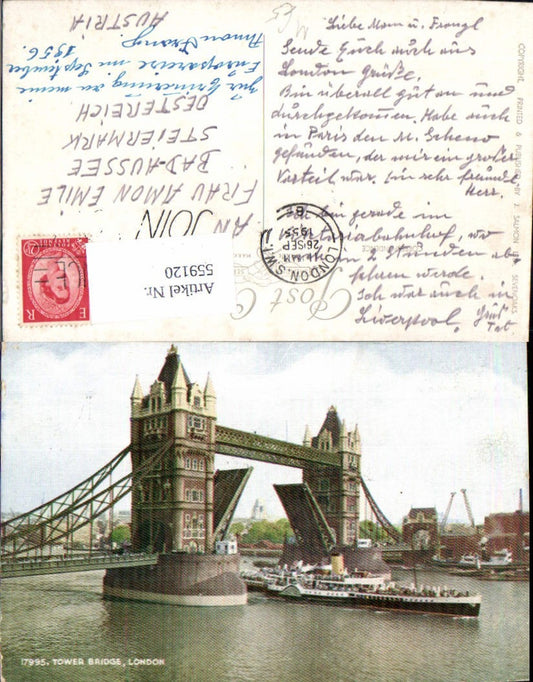 Liebe Mam u. Franzl
Sende Euch auch aus
London Grüße.
Bin überall gut an und
durchgekommen. Habe auch
in Paris den M.
gefunden, der mir ein großer
Vorteil war. Ein sehr
Herr.
Bin gerade im
Viktoriabahnhof, wo
in 2 Stunden ab
werde.
Ich war auch in
Liverpool.
COPYRIGHT. PRINTED & PUBLISHED BY J. SALMON LTD. SEVENOAKS.
LONDON. S.W.1
28 SEP
1955
POST C
AN JOIN
FRAU AMON EMILE
BAD-AUSSEE
STEIERMARK
OESTEREICH
zur Erinnerung an meine
Europareise im September
1956.
Amon Franz.
AUSTRIA
E R
Artikel Nr.
559120
17995. TOWER BRIDGE, LONDON